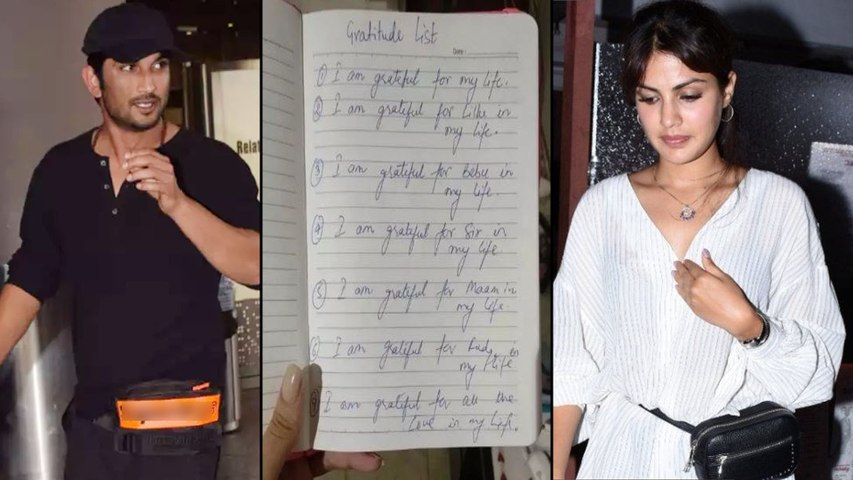 Gratitude List
Date:
① I am grateful for my life.
② I am grateful for Lillu in
my life.
③ I am grateful for Bebu in
my life.
④ I am grateful for Sir in
my life
⑤ I am grateful for Maam in
my life.
⑥ I am grateful for Fudge in
my life
⑦ I am grateful for all the
Love in my life.
Relat